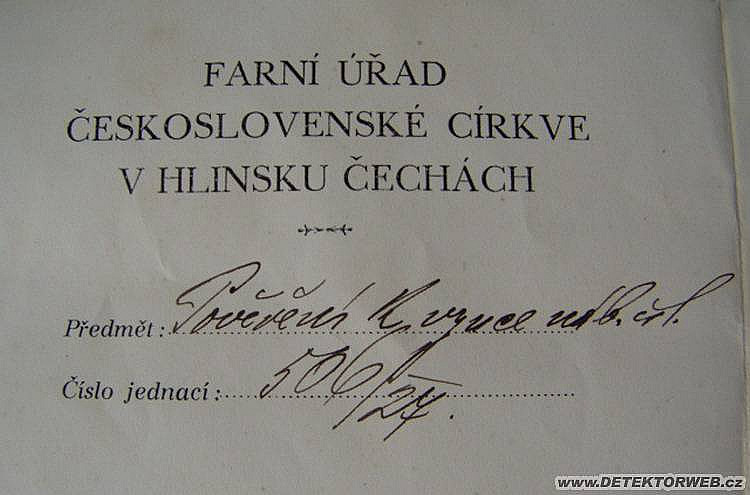 FARNÍ ÚŘAD
ČESKOSLOVENSKÉ CÍRKVE
V HLINSKU ČECHÁCH
Předmět: Pověření k výuce náb. čsl.
Číslo jednací: 506/24.
www.DETEKTORWEB.cz